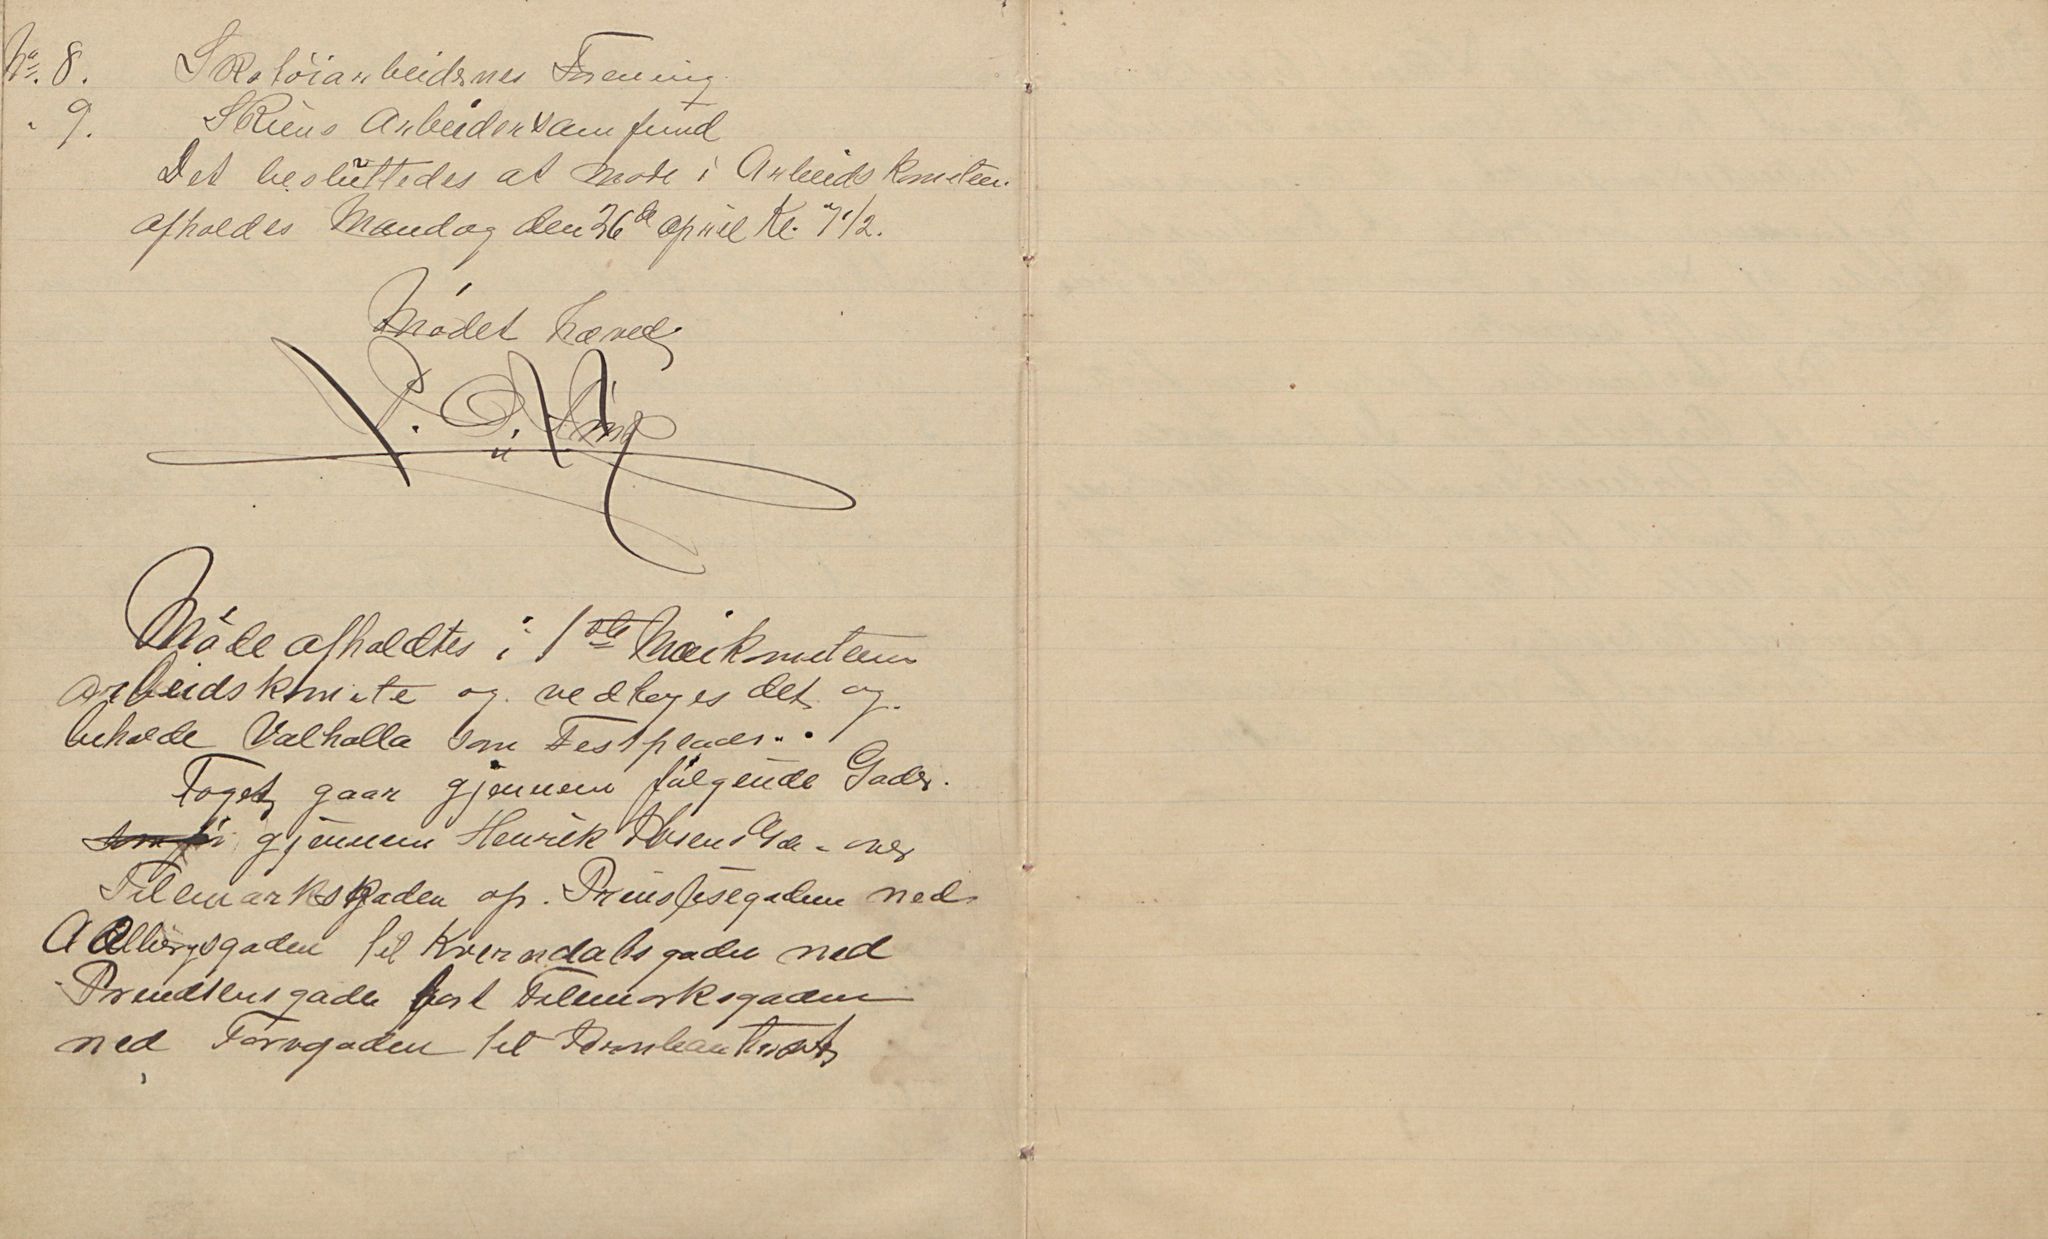 No. 8. Skotöiarbeidernes Forening
" 9. Skiens Arbeidersamfund
Det besluttedes at møde i Arbeidskomiteen
afholdes Mandag den 26de april Kl. 7 1/2.
Mödet hævet
P. O.
Möde afholdtes i 1ste Maikomiteens
arbeidskomite og vedtoges det og
beholde Valhalla som Festplads.
Toget gaar gjennem fölgende Gader.
gjennem Henrik Ibsens Gde - over
Telemarksgaden op. Prinsessegaden ned
Aalborgsgaden til Kverndalsgaden ned
Prindsensgade bort Telemarksgaden
ned Torvgaden til